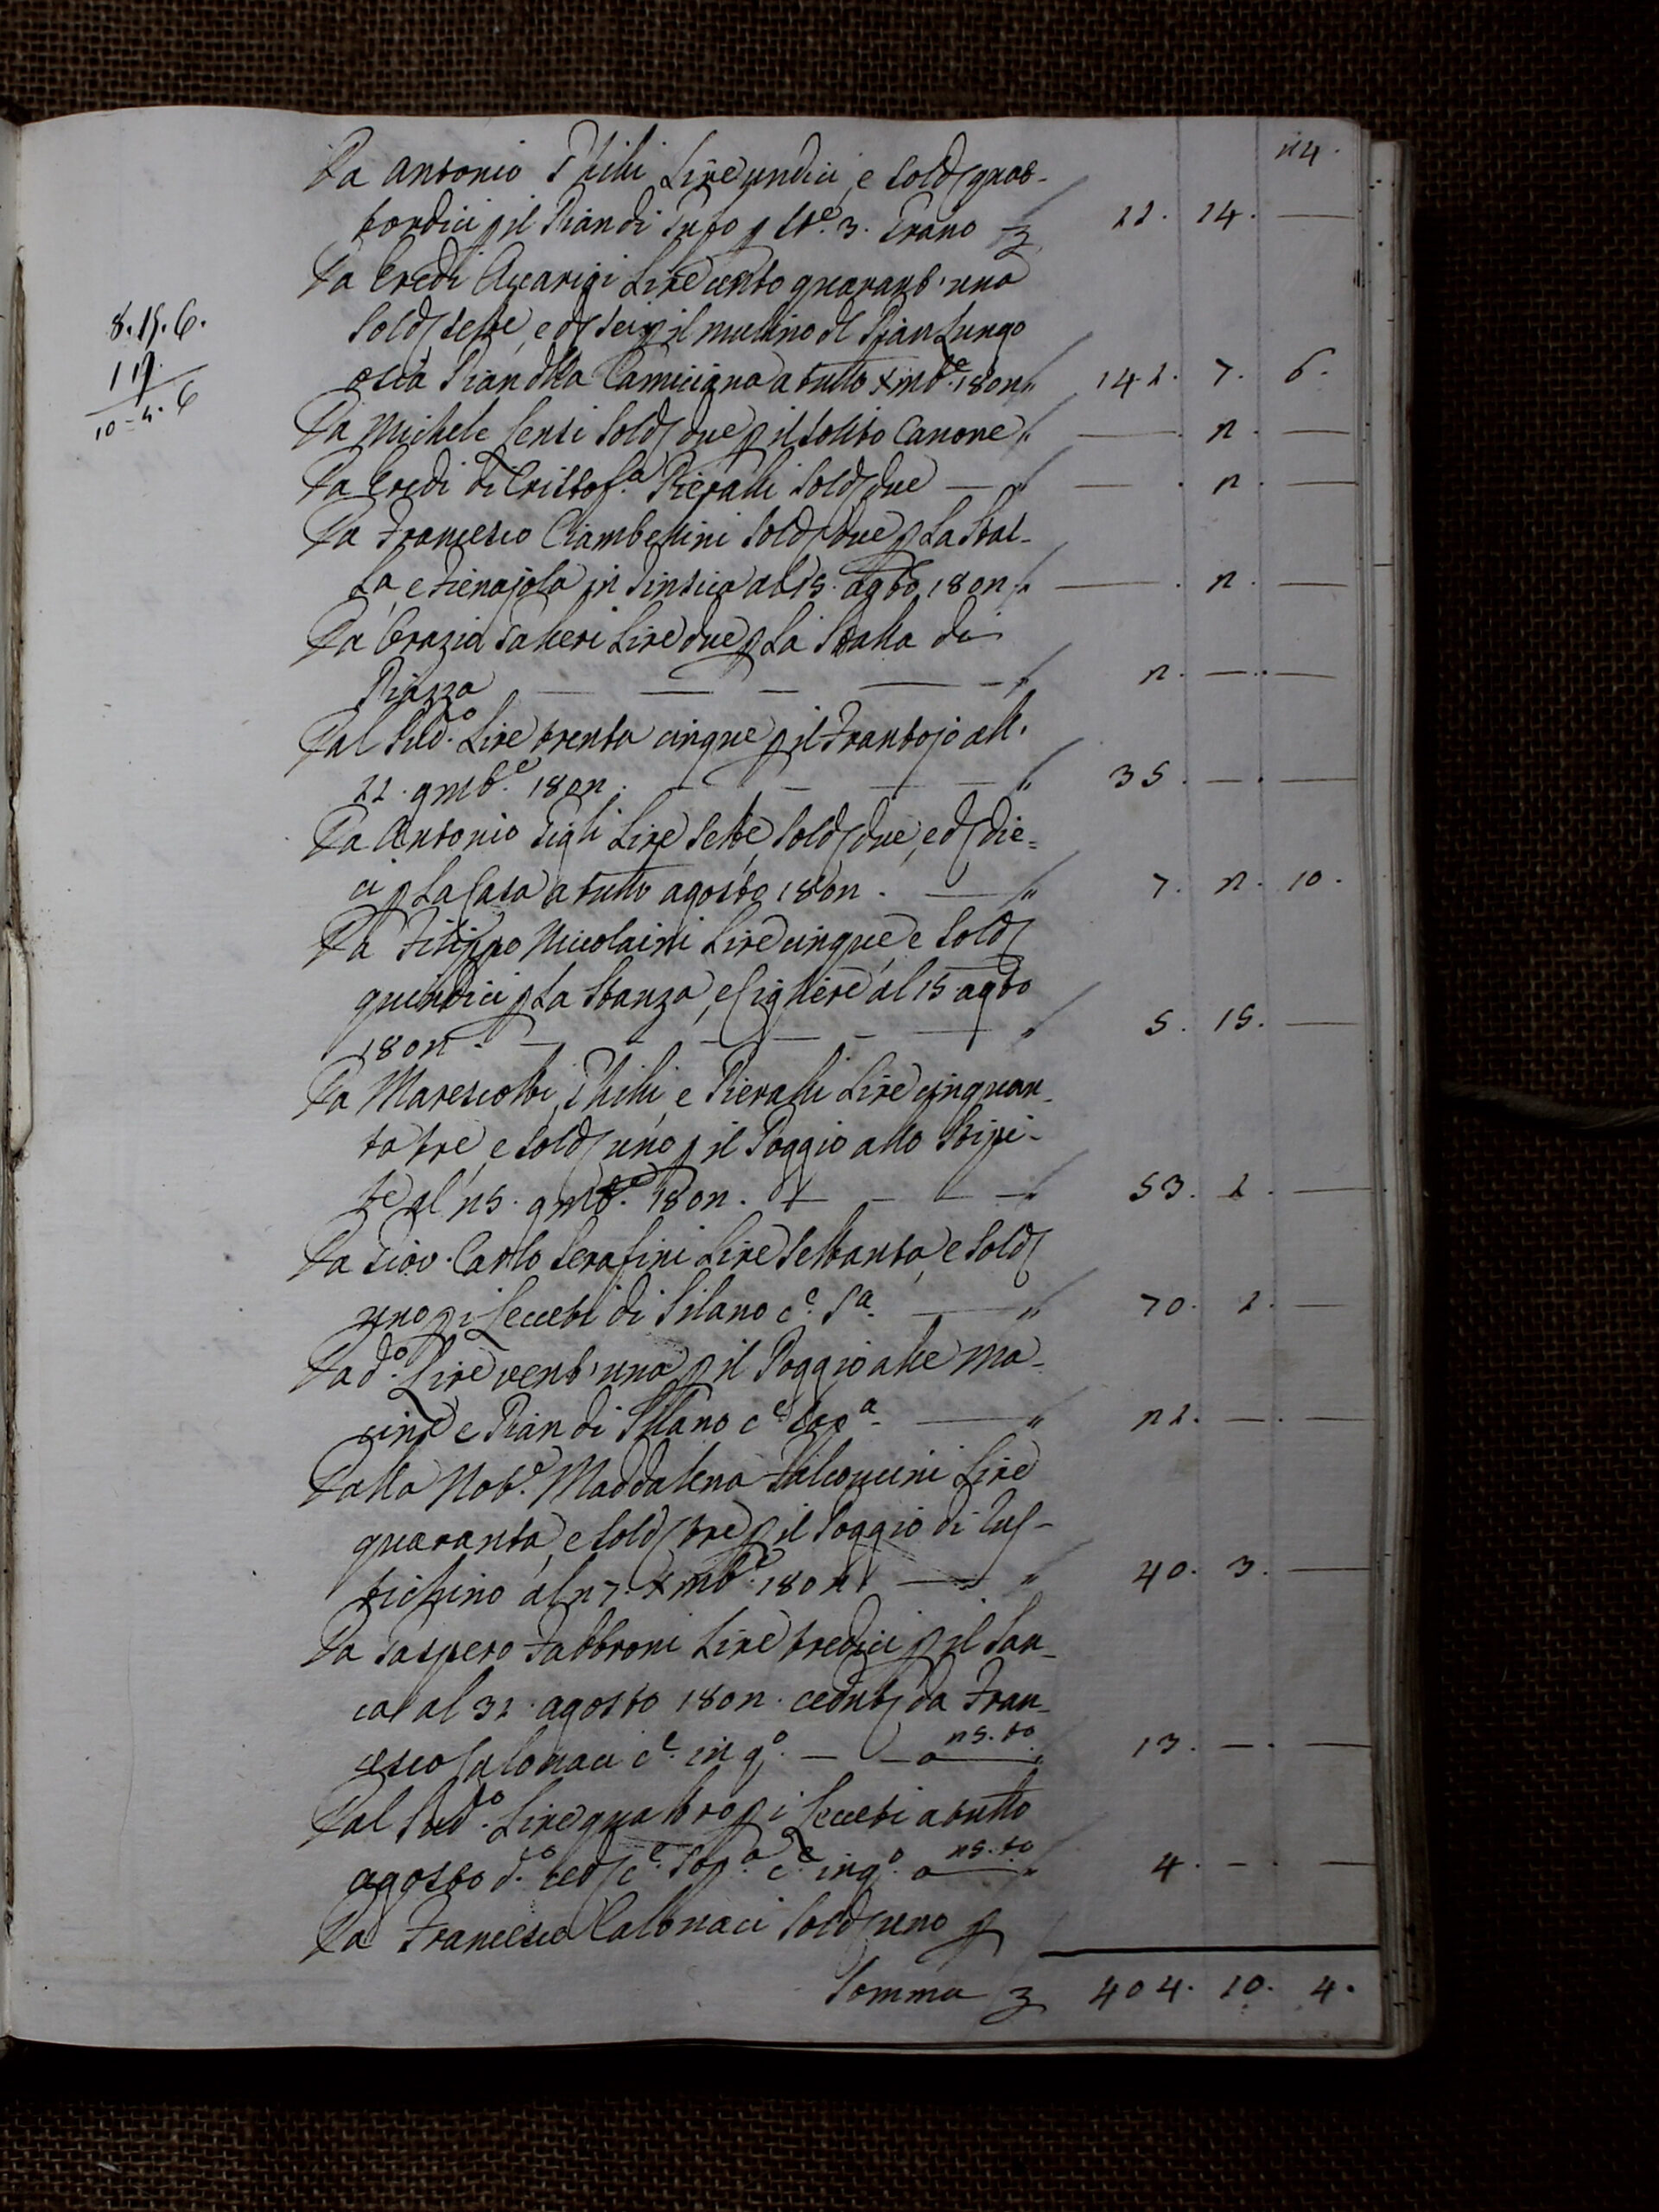 Da Antonio Ghilli Lire undici, e Sold quat-
tordici p il Pian di Tufo p St.ª 3. Grano 11. 14. —
Da Eredi Accarigi Lire cento quarant'una
Sold sette, e d sei p il mulino dl Pian Lungo
8.15.6.
ossia Pian dlla Camicigna a tutto Xmb.e 1802 " 141. 7. 6.
1 19.
10-4.6
Da Michele Censi Sold due p il solito Canone " — 2. —
Da Eredi di Cristof.a Pieralli Sold due — " — 2. —
Da Francesco Ciambellini Sold due p La Stal-
La, e Fienajola in al 15. agto 1802 " — 2. —
Da Orazio Galleri Lire due p La Stalla di
Piazza — — — — " 2. — . —
Dal Sud.o Lire trenta cinque p il Frantojo all'
11. 9mb.e 1802. — — — — " 35. — . —
Da Antonio Gigli Lire Sette, Sold due, e d die=
ci p La Casa a tutto agosto 1802. — " 7. 2. 10.
Da Filippo Niccolaini Lire cinque, e Sold
quindici p La Stanza, e al 15. agto
1802. — — — — — " 5. 15. —
Da Marescotti, Ghilli, e Pieralli Lire cinquan-
ta tre, e Sold uno p il Poggio allo Stipi-
te al 25. 9mb.e 1802. — — — — " 53. 1. —
Da Giov. Carlo Serafini Lire Settanta, e Sold
uno p i Lecceti di Silano c.e S.a — " 70. 1. —
Da d.o Lire vent'una p il Poggio alle Ma-
cine e Pian di Sillano c.e Sop.a — " 21. — . —
Dalla Nob.e Maddalena Falconcini Lire
quaranta, e Sold tre p il Poggio di Cus-
tichino al 27. Xmb.e 1802. — " 40. 3. —
Da Gaspero Fabbroni Lire tredici p il San-
cai al 31. agosto 1802. ceduti da Fran-
cesco Calonaci c.e in q.o — — a 25. to " 13. — . —
Dal Sud.o Lire quattro p i Lecceti a tutto
agosto d.o ced c.e Sop.a c.e in q.o a 25. to " 4. — . —
Da Francesco Calonaci Sold uno p
Somma 404. 10. 4.